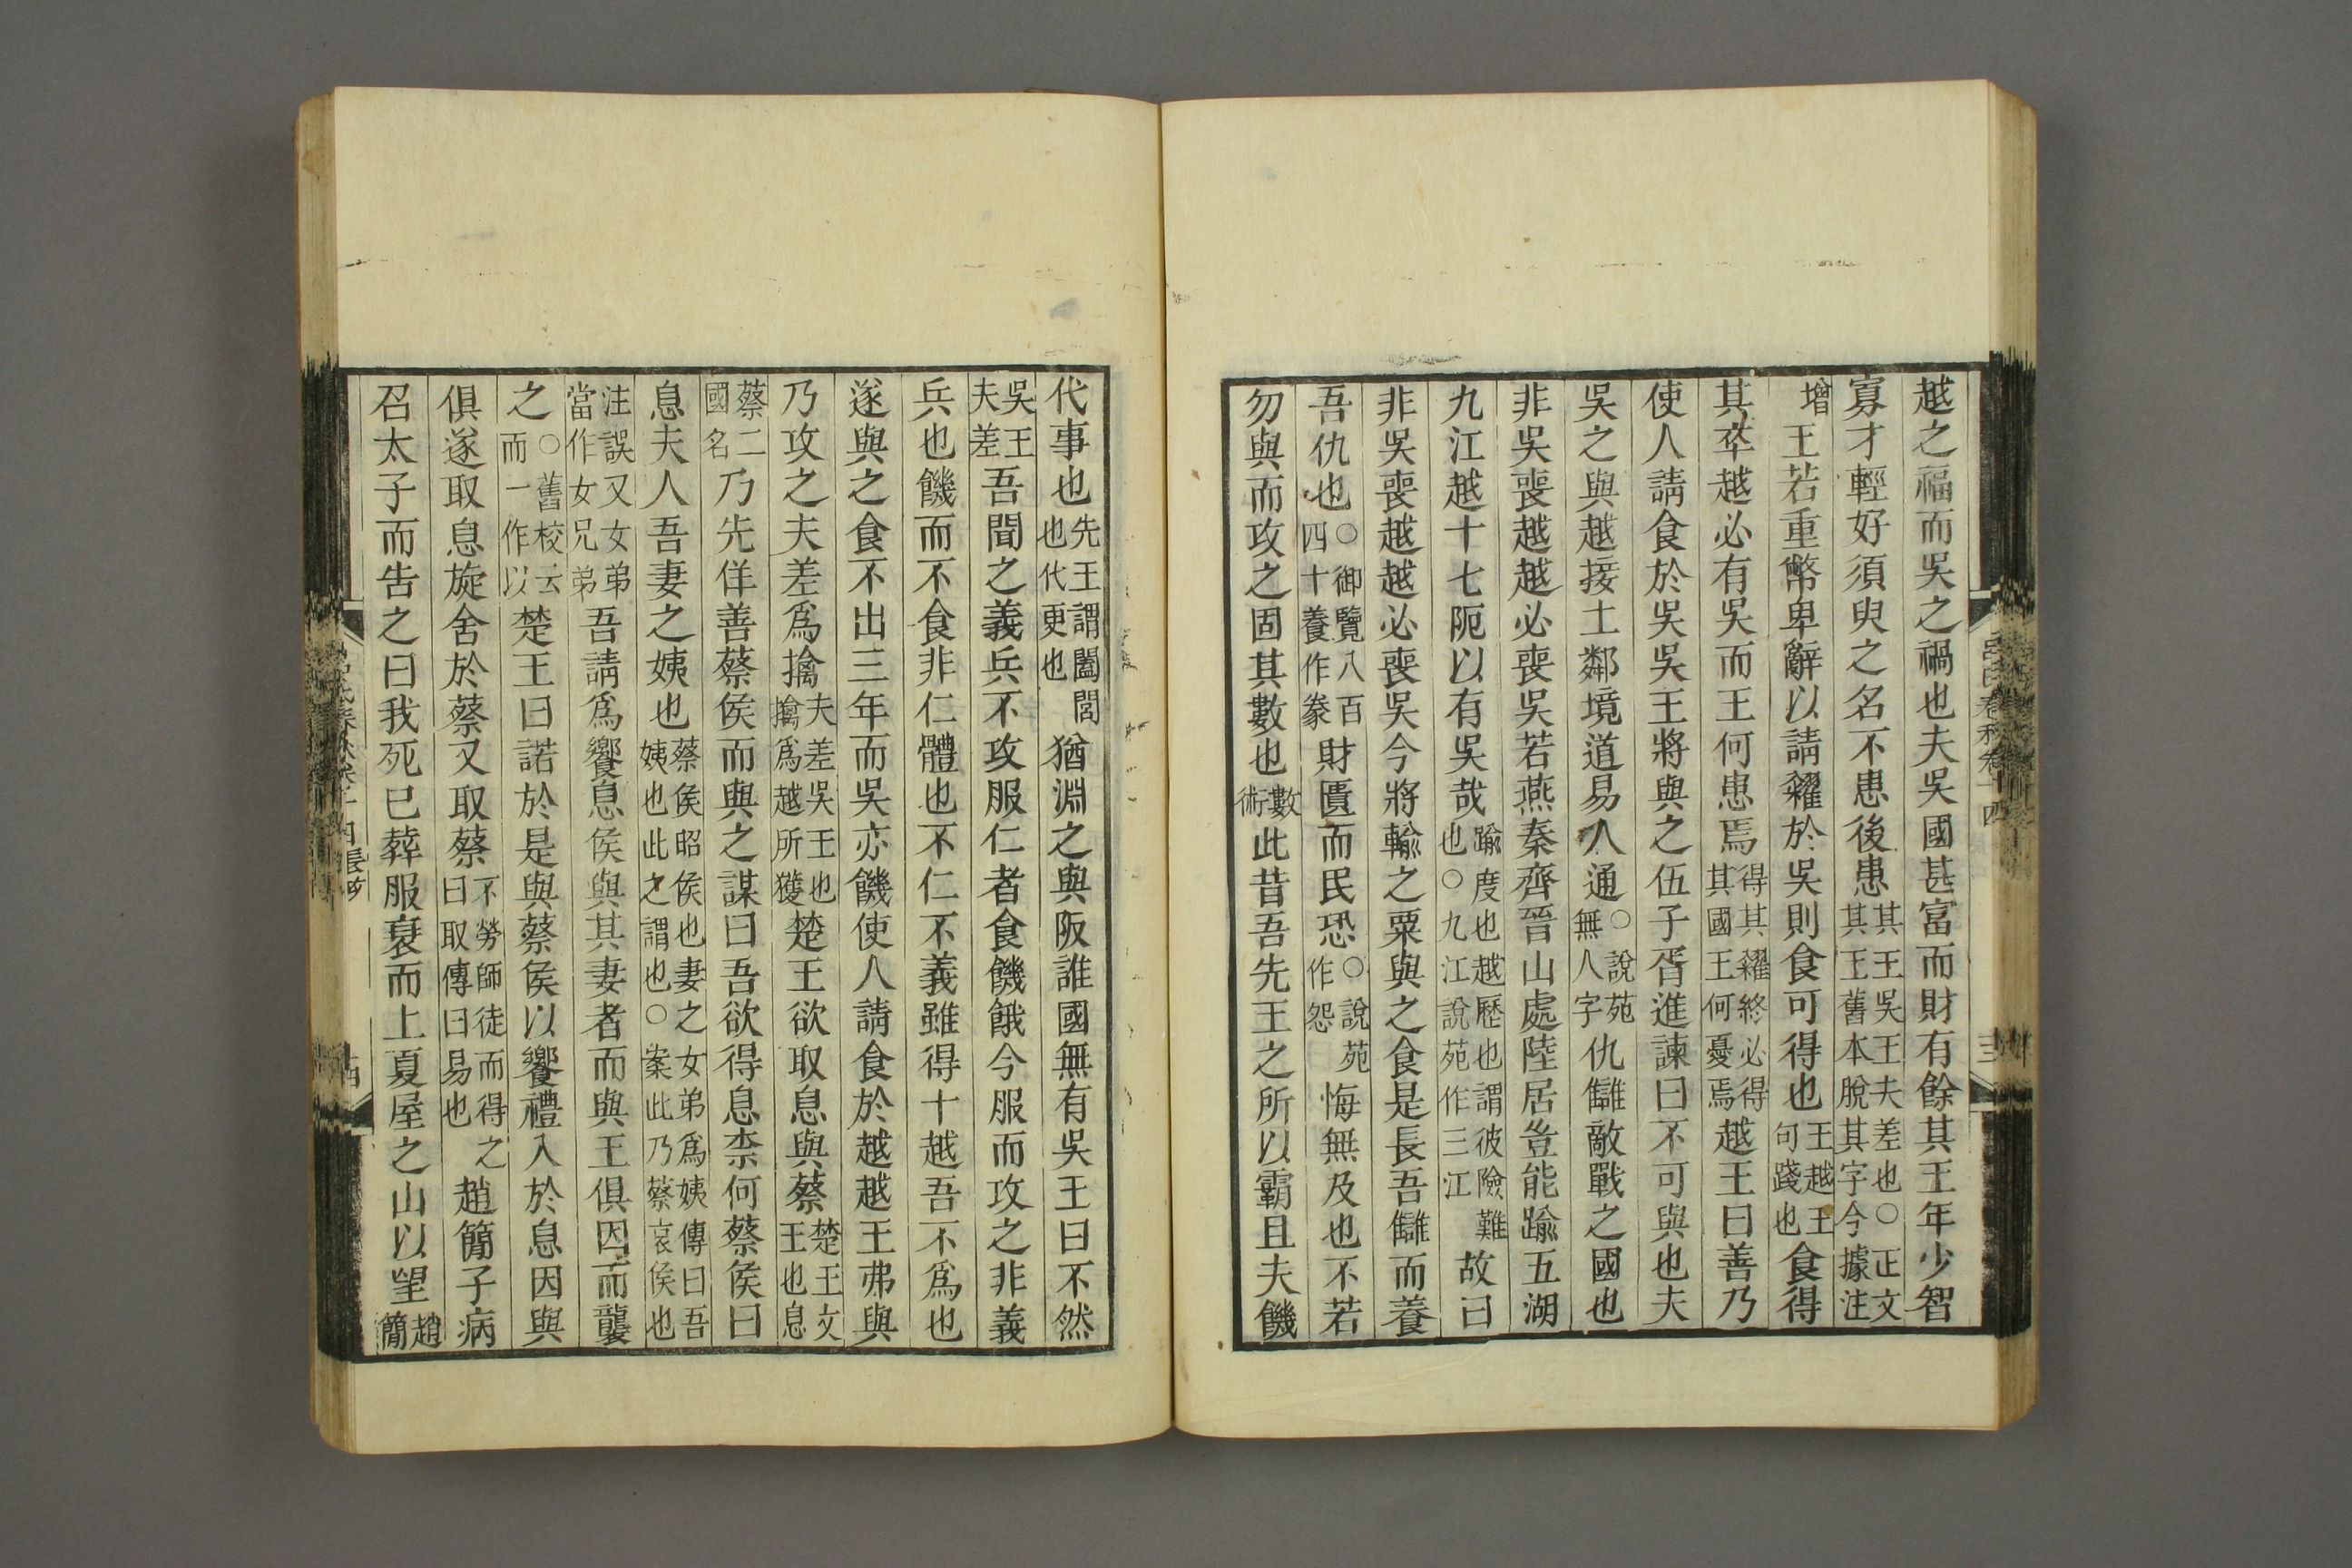 越之福而吳之禍也夫吳國甚富而財有餘其王年少智
寡才輕好須臾之名不患後患其王吳王夫差也○正文其王舊本脫其字今據注
增王若重幣卑辭以請糴於吳則食可得也王越王句踐也食得
其卒越必有吳而王何患焉得其糴終必得其國王何憂焉越王曰善乃
使人請食於吳吳王將與之伍子胥進諫曰不可與也夫
吳之與越接土鄰境道易人通○說苑無人字仇讎敵戰之國也
非吳喪越越必喪吳若燕秦齊晉山處陸居豈能踰五湖
九江越十七阨以有吳哉踰度也越歷也謂彼險難也○九江說苑作三江故曰
非吳喪越越必喪吳今將輸之粟與之食是長吾讎而養
吾仇也○御覽八百四十養作豢財匱而民恐○說苑作怨悔無及也不若
勿與而攻之固其數也數術此昔吾先王之所以霸且夫饑
呂氏春秋卷十四
代事也先王謂闔閭也代更也猶淵之與阪誰國無有吳王曰不然
吳王夫差吾聞之義兵不攻服仁者食饑餓今服而攻之非義
兵也饑而不食非仁體也不仁不義雖得十越吾不爲也
遂與之食不出三年而吳亦饑使人請食於越越王弗與
乃攻之夫差爲擒夫差吳王也擒爲越所獲楚王欲取息與蔡楚王文王也息
蔡二國名乃先佯善蔡侯而與之謀曰吾欲得息柰何蔡侯曰
息夫人吾妻之姨也蔡侯昭侯也妻之女弟爲姨傳曰吾姨也此之謂也○案此乃蔡哀侯也
注誤又女弟當作女兄弟吾請爲饗息侯與其妻者而與王俱因而襲
之○舊校云而一作以楚王曰諾於是與蔡侯以饗禮入於息因與
俱遂取息旋舍於蔡又取蔡不勞師徒而得之曰取傳曰易也趙簡子病
召太子而告之曰我死已葬服衰而上夏屋之山以望趙簡